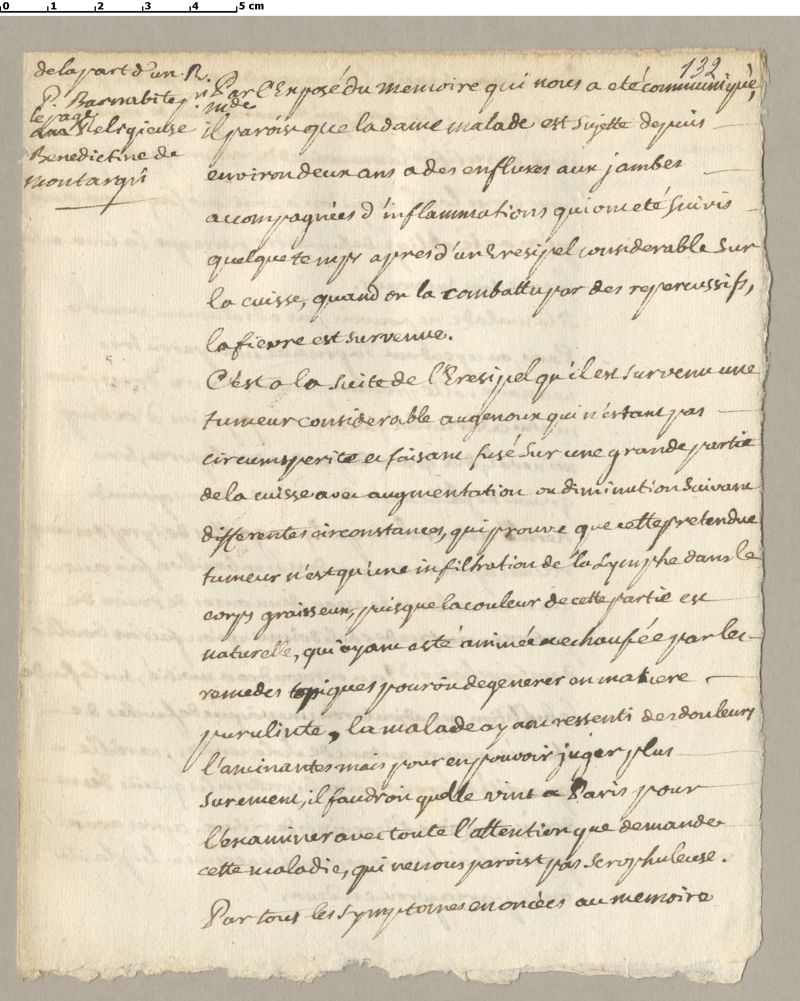 0 1 2 3 4 5 cm
132
de la part d'un R.
P. Barnabite pr
Mde
le page
Religieuse
Benedictine de
Montargi
Par l'Exposé du memoire qui nous a eté communiqué,
il paroist que la dame malade est sujette depuis
environ deux ans a des enflures aux jambes
accompagnées d'inflammations qui ont eté suivis
quelque temps apres d'un Eresipel considerable sur
la cuisse, quand on la combattu par des repercussifs,
la fievre est survenue.
C'est a la suite de l'Eresipel qu'il est survenu une
tumeur considerable au genoux qui n'estant pas
circumsperite et faisant fusé sur une grande partie
de la cuisse avec augmentation ou diminution suivant
differentes circonstances, qui prouve que cette pretendue
tumeur n'est qu'une infiltration de la Lymphe dans le
corps graisseux, puisque la couleur de cette partie est
naturelle, qui ayant esté animée echaufée par les
remedes topiques pouroit degenerer en matiere
purulinte, la malade ayant ressenti des douleurs
l'ancinantes mais pour en pouvoir juger plus
surement, il faudroit quelle vint a Paris pour
l'examiner avec toute l'attention que demande
cette maladie, qui ne nous paroist pas scrophuleuse.
Par tous les symptomes enoncées au memoire